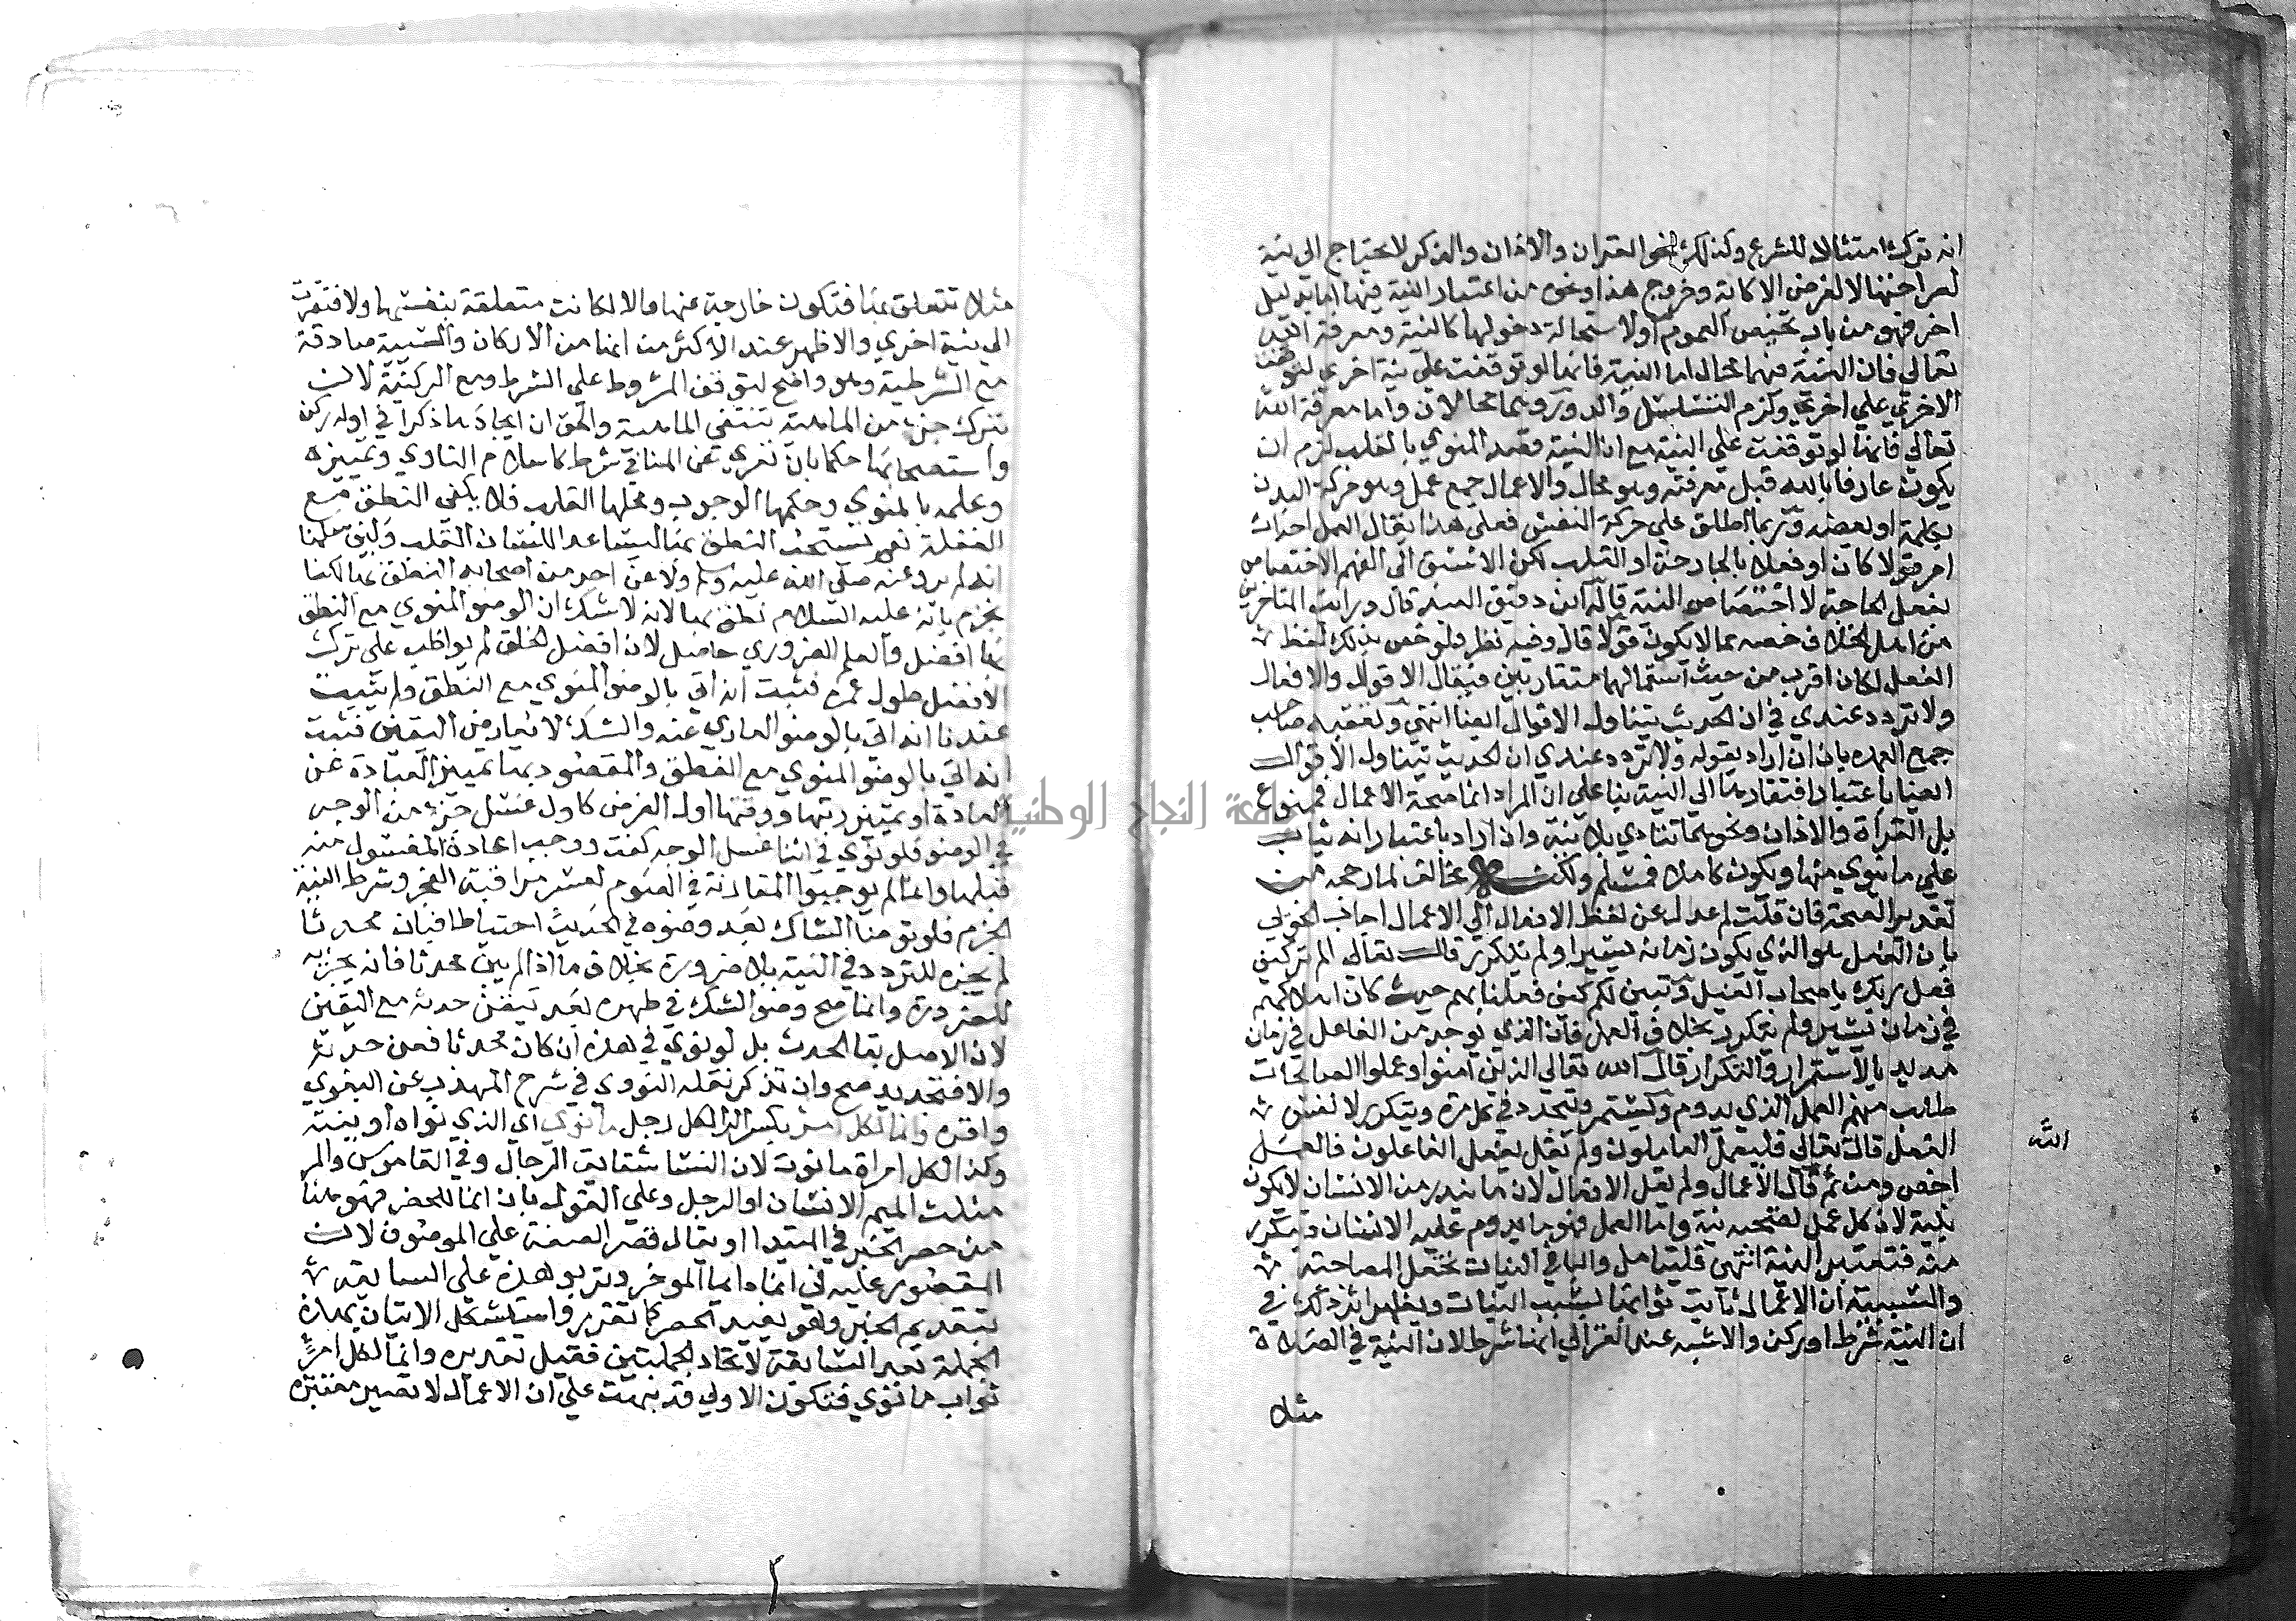 انه ترك امتثالا للشرع وكذلك نحو القران والاذان والذكر لا يحتاج الى نية
لصراحتها الا لغرض الاكانة وخروج هذا ونحوه من اعتبار النية فيها اما بدليل
اخر فهو من باب تخصيص العموم او لاستحالة دخولها كالنية ومعرفة الله
تعالي فان النية فيهما محال اما النية فانها لو توقفت علي نية اخري لتوقفت
الاخري علي اخري ولزم التسلسل والدور وهما محالان واما معرفة الله
تعالي فانها لو توقفت علي النية مع ان النية قصد المنوي بالقلب لزم ان
يكون عارفا بالله قبل معرفته وهو محال والاعمال جمع عمل وهو حركة البدن
بكله او بعضه وربما اطلق علي حركة النفس فعلي هذا يقال العمل احداث
امر قولا كان او فعلا بالجارحة او القلب لكن الاسبق الى الفهم الاختصاص
بفعل الجارحة لا اختصاص النية قاله ابن دقيق العيد قال ورايت المتاخرين
من اهل الخلاف خصه بما لا يكون قولا قال وفيه نظر ولو خص بذلك لفظ
الفعل لكان اقرب من حيث استعمالهما متقاربين فيقال الاقوال والافعال
ولا تردد عندي في ان الحديث يتناول الاقوال ايضا انتهي وتعقبه صاحب
جمع العده بان ان اراد بقوله ولا تردد عندي ان الحديث يتناول الاقوال
ايضا باعتبار افتقارها الي النية بنا علي ان المراد انما صحة الاعمال فممنوع
بل القراة والاذان ونحوهما تتادي بلا نية وان اراد باعتبار انه يثاب
علي ما ينوي منها ويكون كاملا فمسلم ولكنه مخالف لما رجحه من
تقدير الصحة فان قلت لم عدل عن لفظ الافعال الي الاعمال اجاب الخوبي
بان الفعل هو الذي يكون زمانه يسيرا ولم يتكرر قال تعالى الم تر كيف
فعل ربك باصحاب الفيل وتبين لكم كيف فعلنا بهم حيث كان اهلاكهم
في زمان يسير ولم يتكرر بخلاف العمل فانه الذي يوجد من الفاعل في زمان
مديد بالاستمرار والتكرار قال الله تعالي الذين امنوا وعملوا الصالحات
طلب منهم العمل الذي يدوم ويستمر ويتجدد في كل مرة ويتكرر لا نفس
الفعل قال تعالي فليعمل العاملون ولم يقل يفعل الفاعلون فالعمل
الله
اخص ومن ثم قال الاعمال ولم يقل الافعال لان ما يندر من الانسان لا يكون
بنية لان كل عمل تصحبه نية واما العمل فهو ما يدوم عليه الانسان ويتكرر
منه فتعتبر النية انتهى فليتامل والبا في النيات تحتمل المصاحبة
والسببية ان الاعمال ثابت ثوابها بسبب النيات ويظهر اثر ذلك في
ان النية شرط او ركن والاشبه عند الغزالي انها شرط لان النية في الصلاة
مثلا
مثلا تتعلق بها فتكون خارجة عنها والا لكانت متعلقة بنفسها ولافتقرت
الى نية اخري والاظهر عند الاكثر من انها من الاركان والسببية صادقة
مع الشرطية وهو واضح لتوقف المشروط علي الشرط ومع الركنية لان
بترك جزء من الماهية تنتفي الماهية والحق ان ايجادها ذكرا في اوله ركن
واستصحابها حكما بان تعري عن المنافي شرط كاسلام الناوي وتمييزه
وعلمه بالمنوي وحكمها الوجوب ومحلها القلب فلا يكفي النطق مع
الغفلة نعم يستحب النطق بها ليساعد اللسان القلب ولين سلمنا
انه لم يرو عنه صلى الله عليه وسلم ولا عن احد من اصحابه النطق بها لكنا
نجزم بانه عليه السلام نطق بها لانه لا شك ان الوضو المنوي مع النطق
بها افضل والعلم الضروري حاصل لان افضل الخلق لم يواظب على ترك
الافضل طول عمره فثبت انه اتي بالوضو المنوي مع النطق ولم يثبت
عندنا انه اتى بالوضو العاري عنه والشك لا يعارض اليقين فثبت
انه اتي بالوضو المنوي مع النطق والمقصود بها تمييز العبادة عن
العادة او تمييز رتبها ووقتها اول الفرض كاول غسل جزء من الوجه
في الوضو فلو نوي في اثنا غسل الوجه كفت ووجب اعادة المغسول منه
قبلها وانما لم يوجبوا المقارنة في الصوم لعسر مراقبة الفجر وشرط النية
الجزم فلو توضا الشاك بعد وضوه في الحديث احتياطا فبان محدثا
لم يجزه للتردد في النية بلا ضرورة بخلاف ما اذا لم يبن محدثا فانه يجزيه
للضرورة وانما صح وضو الشك في طهره بعد تيقن حدثه مع اليقين
لان الاصل بقا الحدث بل لو نوي في هذه ان كان محدثا فعن حدثه
والا فتجديد صح وان تذكر نقله النووي في شرح المهذب عن البغوي
واقره وانما لكل امرئ بكسر الرا لكل رجل ما نوي اي الذي نواه او بنيته
وكذا لكل امراة ما نوت لان النسا شقايق الرجال وفي القاموس والمر
مثلث الميم الانسان او الرجل وعلي القول بان انما للحصر فهو هنا
من حصر الخبر في المبتدا او يقال قصر الصفة علي الموصوف لان
المقصور عليه في انما دايما الموخر ورتبوا هذه علي السابقه
بتقديم الخبر وهو يفيد الحصر كما تقرر واستشكل الاتيان بهذه
الجملة بعد السابقة لاتحاد الجملتين فقيل تقديره وانما لكل امرئ
ثواب ما نوي فتكون الاولي قد نبهت علي ان الاعمال لا تصير معتبره
٢
جامعة النجاح الوطنية